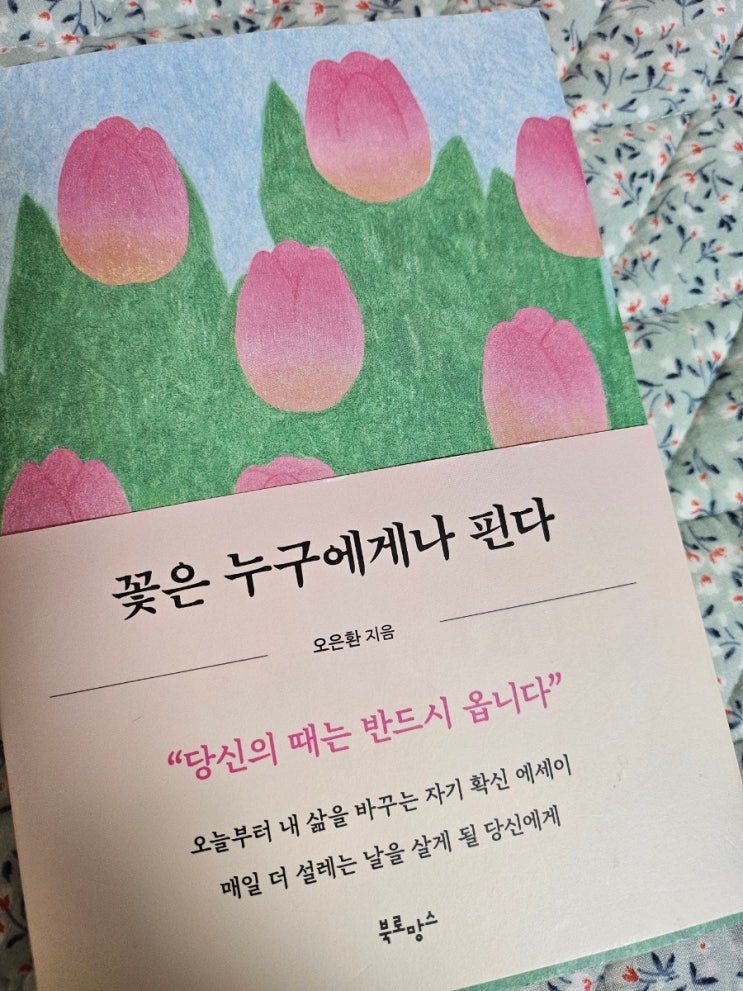 꽃은 누구에게나 핀다
오은환 지음
“당신의 때는 반드시 옵니다”
오늘부터 내 삶을 바꾸는 자기 확신 에세이
매일 더 설레는 날을 살게 될 당신에게
북로망스